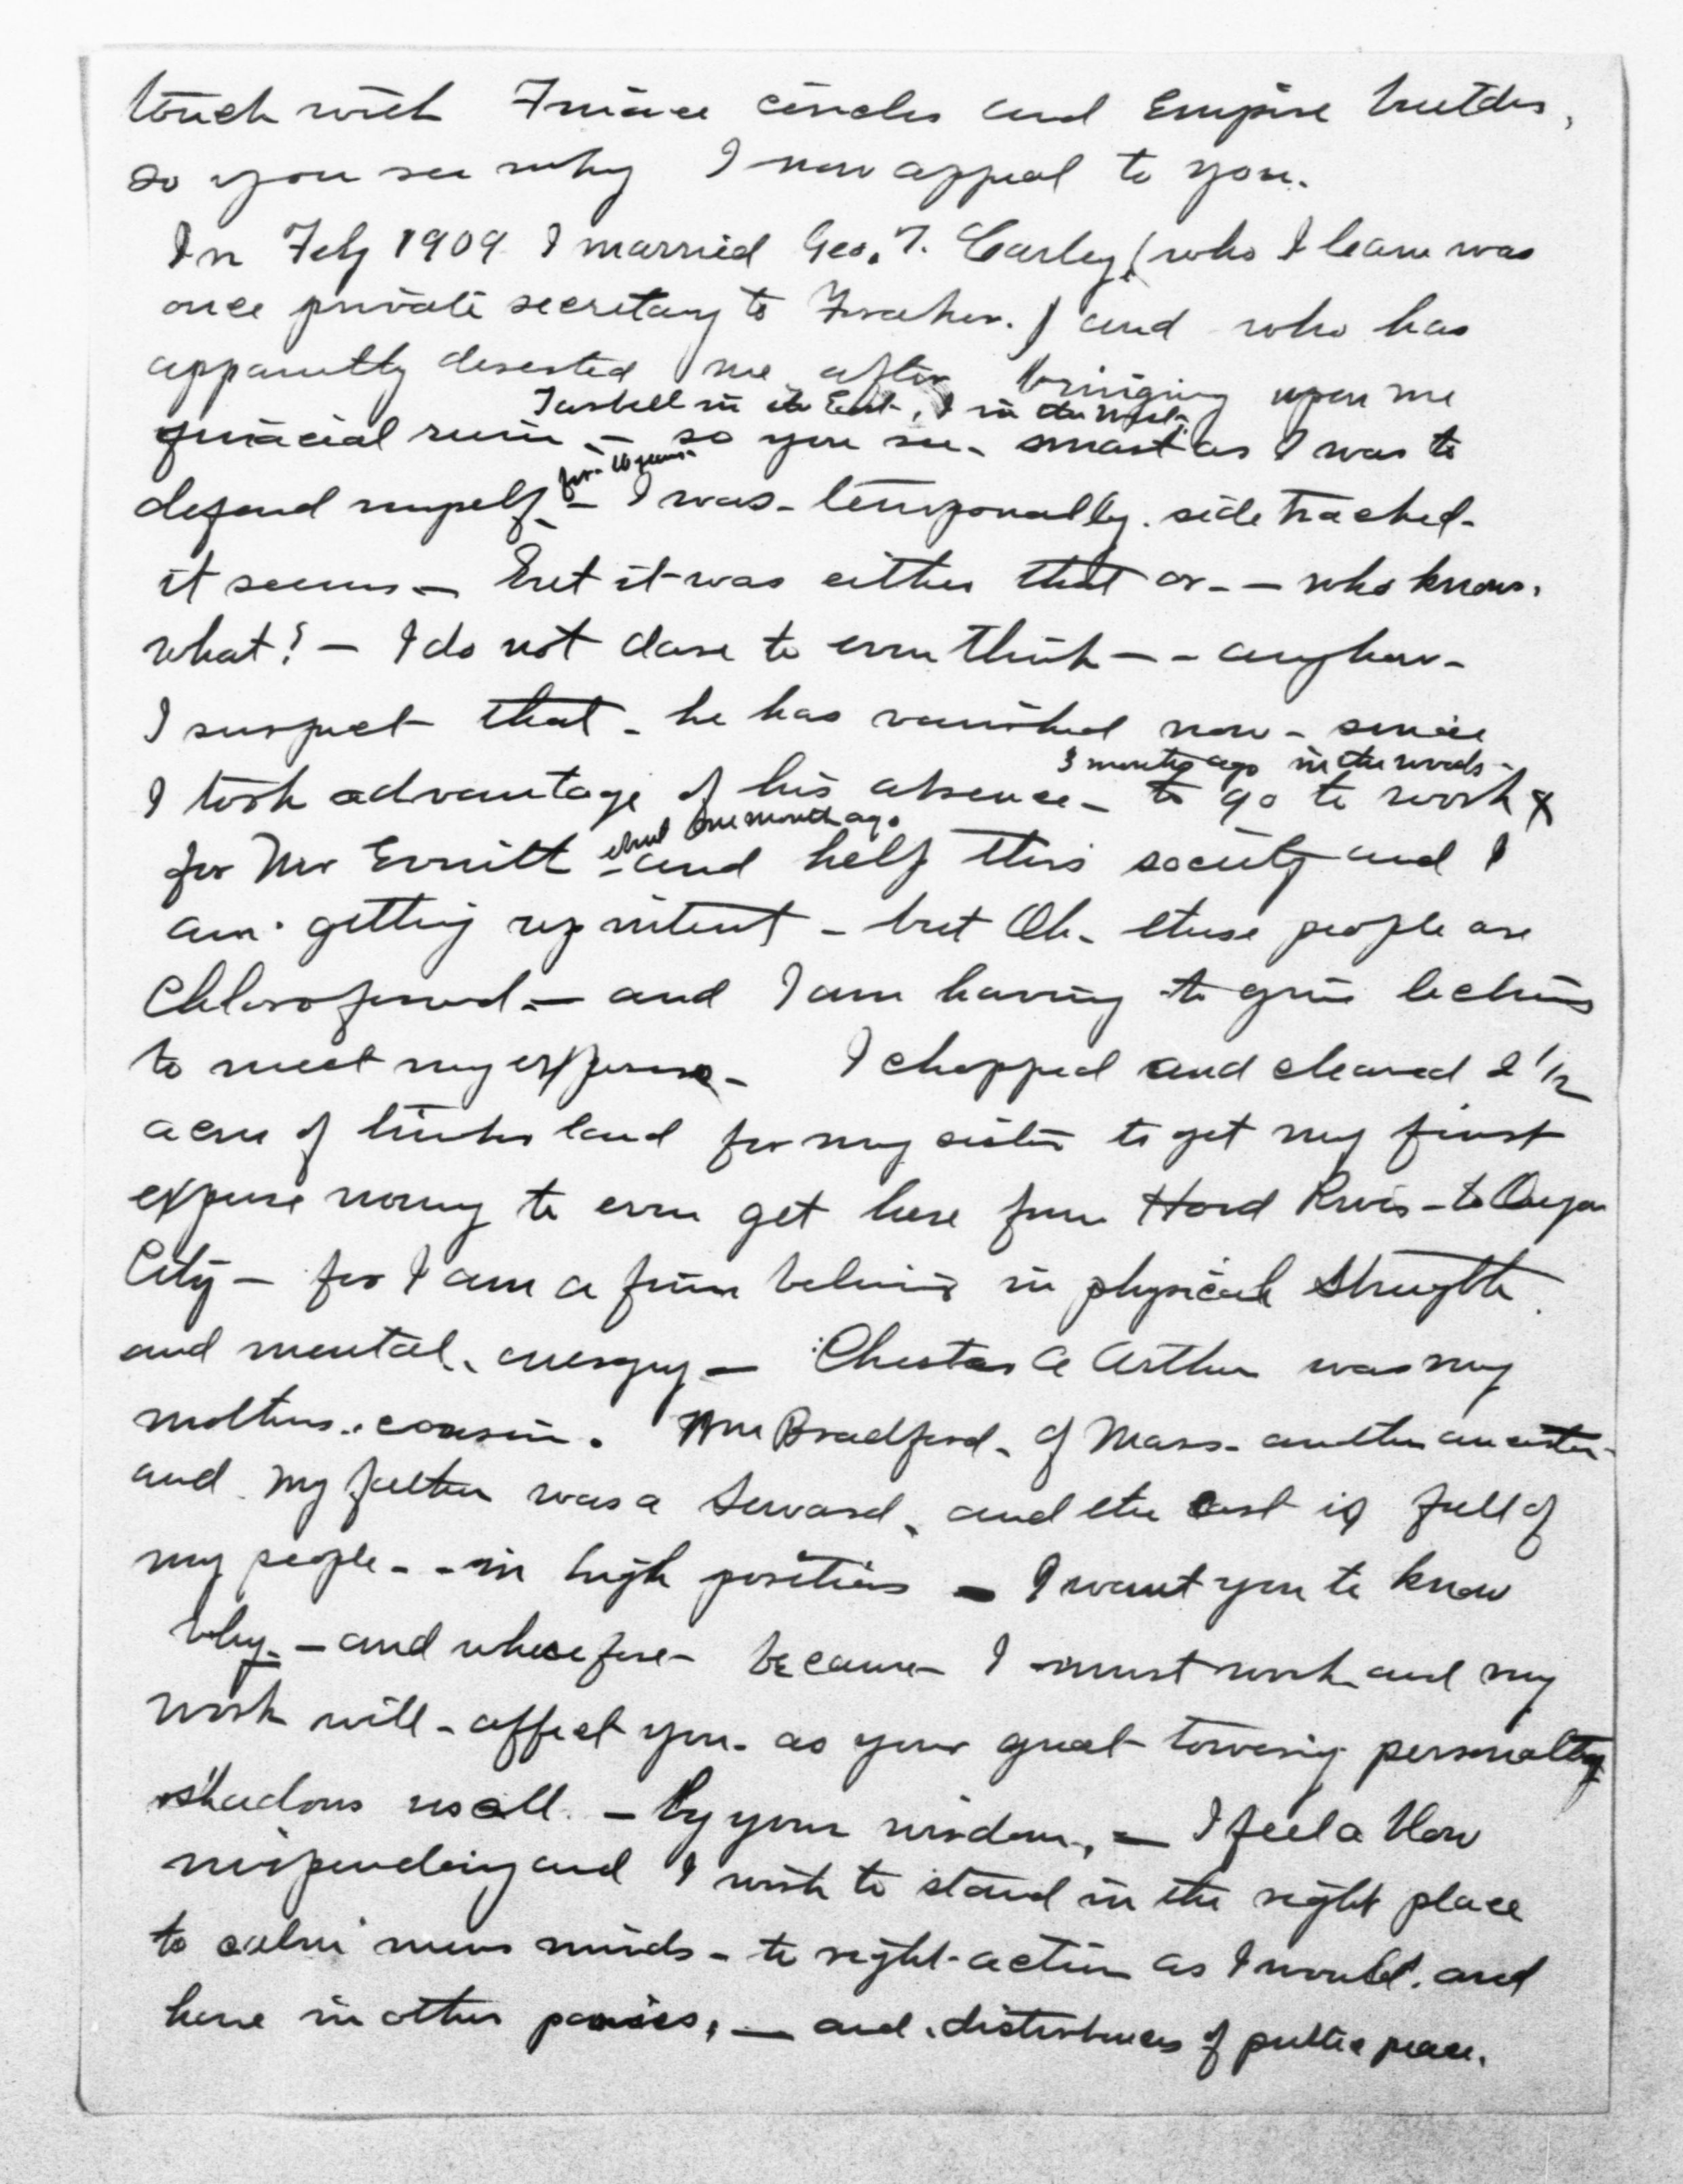 touch with Finance circles and Empire builders,
so you see why I now appeal to you.
In Feby 1909 I married Geo. T. Carley, (who I learn was
once private secretary to ) and who has
apparently deserted me after bringing upon me
finacial ruin – so you see – smart as I was to
in the East, I in the West.
defend myself – I was – temporally. side tracked –
for 10 years –
it seems – But it was either that or – – who knows.
what? – I do not dare to even think – – anyhow –
I suspect that – he has vanished now – since
I took advantage of his absence – to go to work x
3 months ago in the woods –
for Mr and help this society and I
one month ago.
am getting – but Oh – these people are
Chloroformed – and I am having to give lectures
to meet my expense – I chopped and cleared 2 1/2
acres of timber land for my sister to get my first
expense money to even get here from Hood River – to Oregon
City – for I am a firm believer in physical strength
and mental. energy – Chester A Arthur was my
mothers. cousin. Wm Bradford – of Mass – another ancestor –
and my father was a Seward, and the East is full of
my people – – in high positions – I want you to know
Why – and wherefore – because – I must work and my
work will – affect you – as your great towering personality
shadows us all. – By your wisdom, – I feel a blow
impending and I wish to stand in the right place
to calm mens minds – to right action as I would. and
have in other panics, – and. disturbances of public peace.